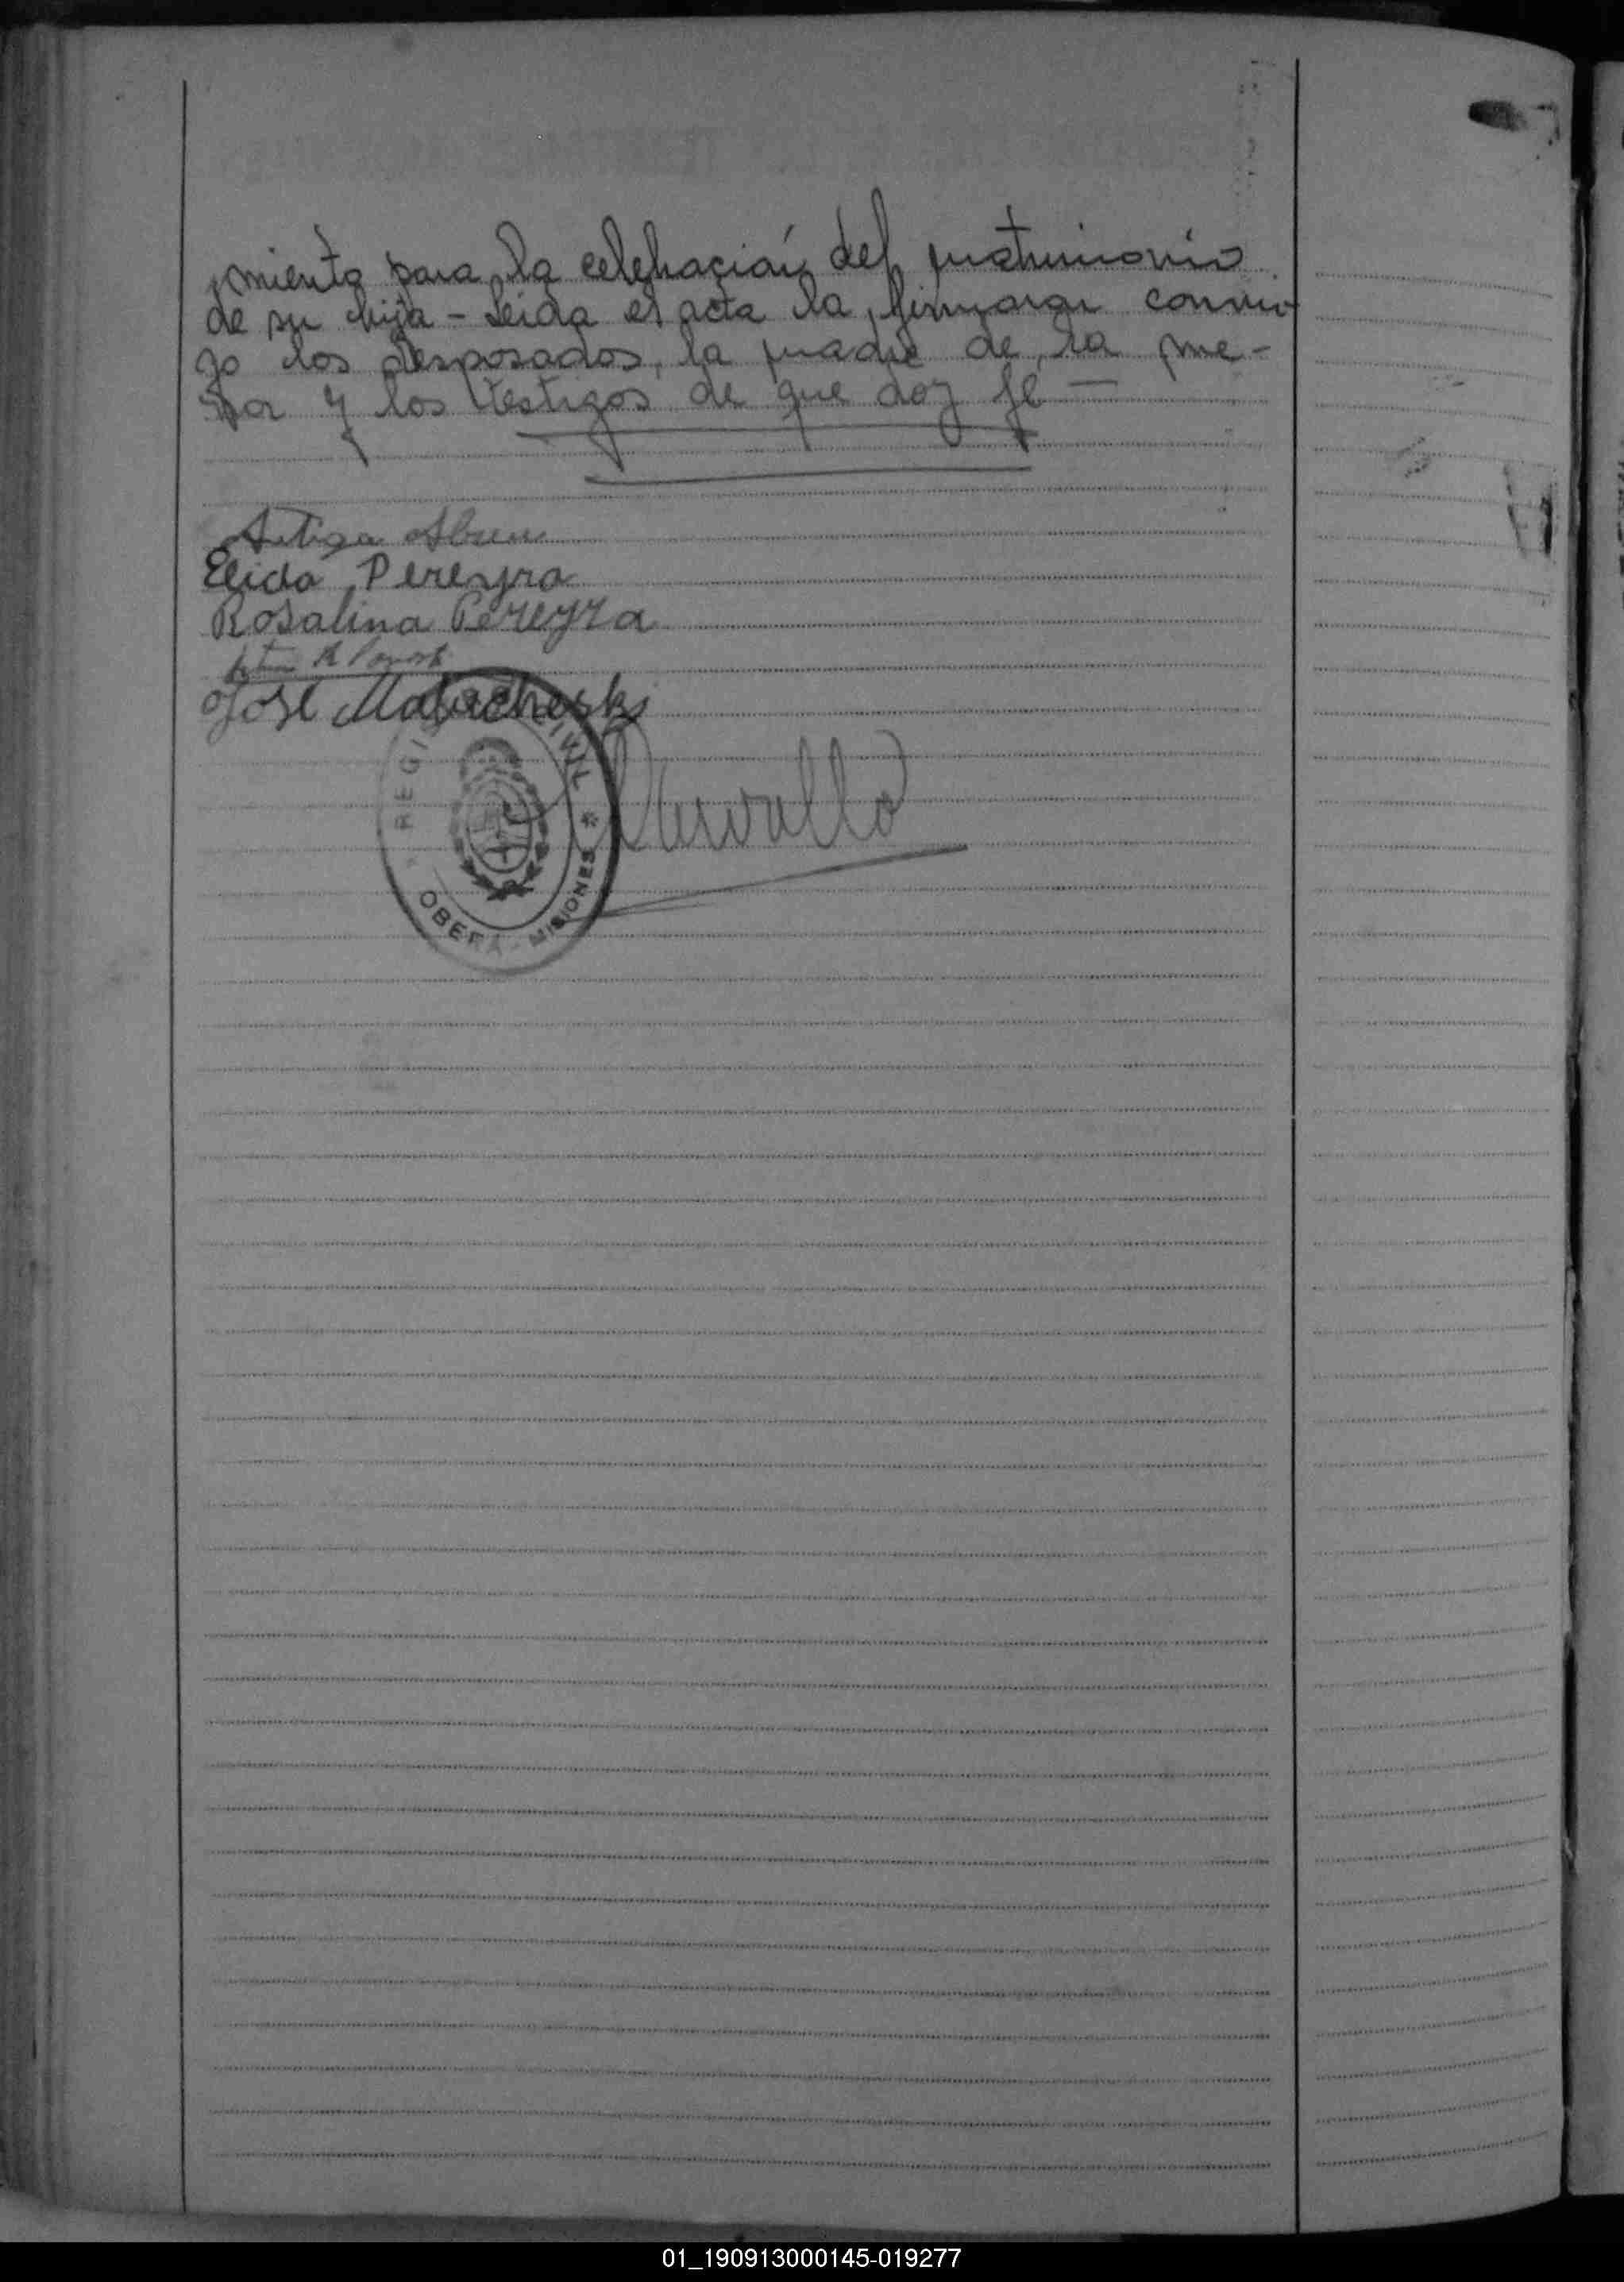 miento para la celebración del matrimonio
de su hija - Leida el acta la firmaron conmi
go los desposados, la madre de la me-
nor y los testigos de que doy fe —
Artiga Abreu
Elida Pereyra
Rosalina Pereyra
José Malacheski
REGISTRO CIVIL
OBERA - MISIONES *
01_190913000145-019277